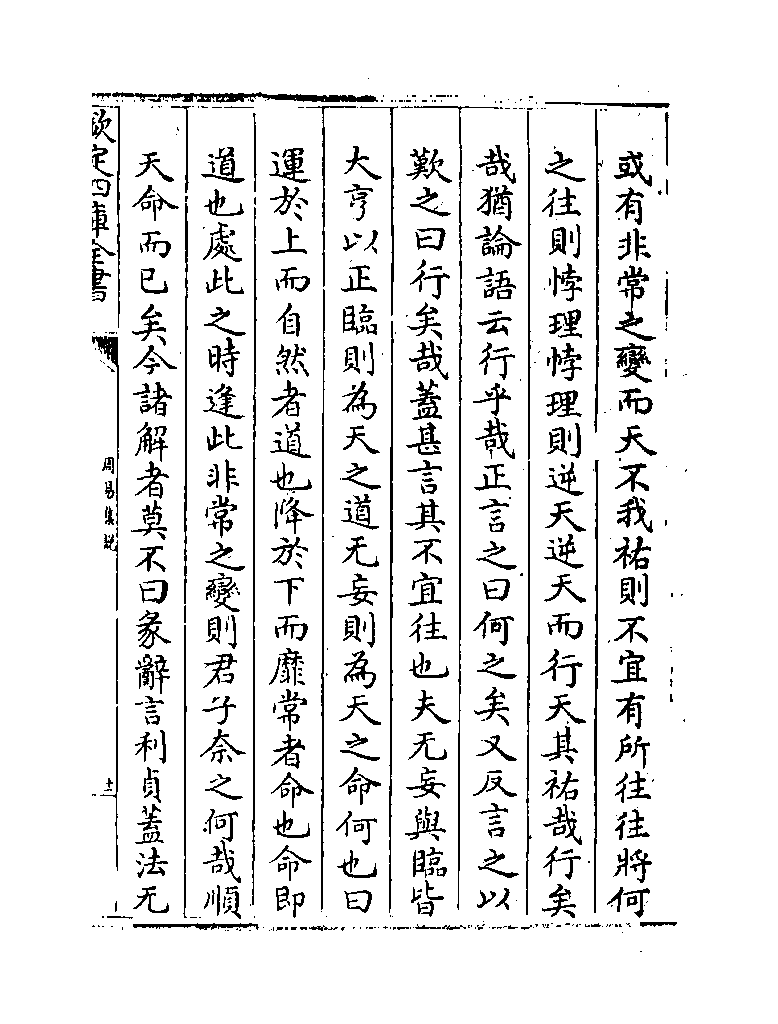 或有非常之變而天不我祐則不宜有所往往將何
之往則悖理悖理則逆天逆天而行天其祐哉行矣
哉猶論語云行乎哉正言之曰何之矣又反言之以
歎之曰行矣哉蓋甚言其不宜往也夫无妄與臨皆
大亨以正臨則為天之道无妄則為天之命何也曰
運於上而自然者道也降於下而靡常者命也命即
道也處此之時逢此非常之變則君子奈之何哉順
天命而已矣今諸解者莫不曰彖辭言利貞蓋法无
欽定四庫全書
周易集說
十二